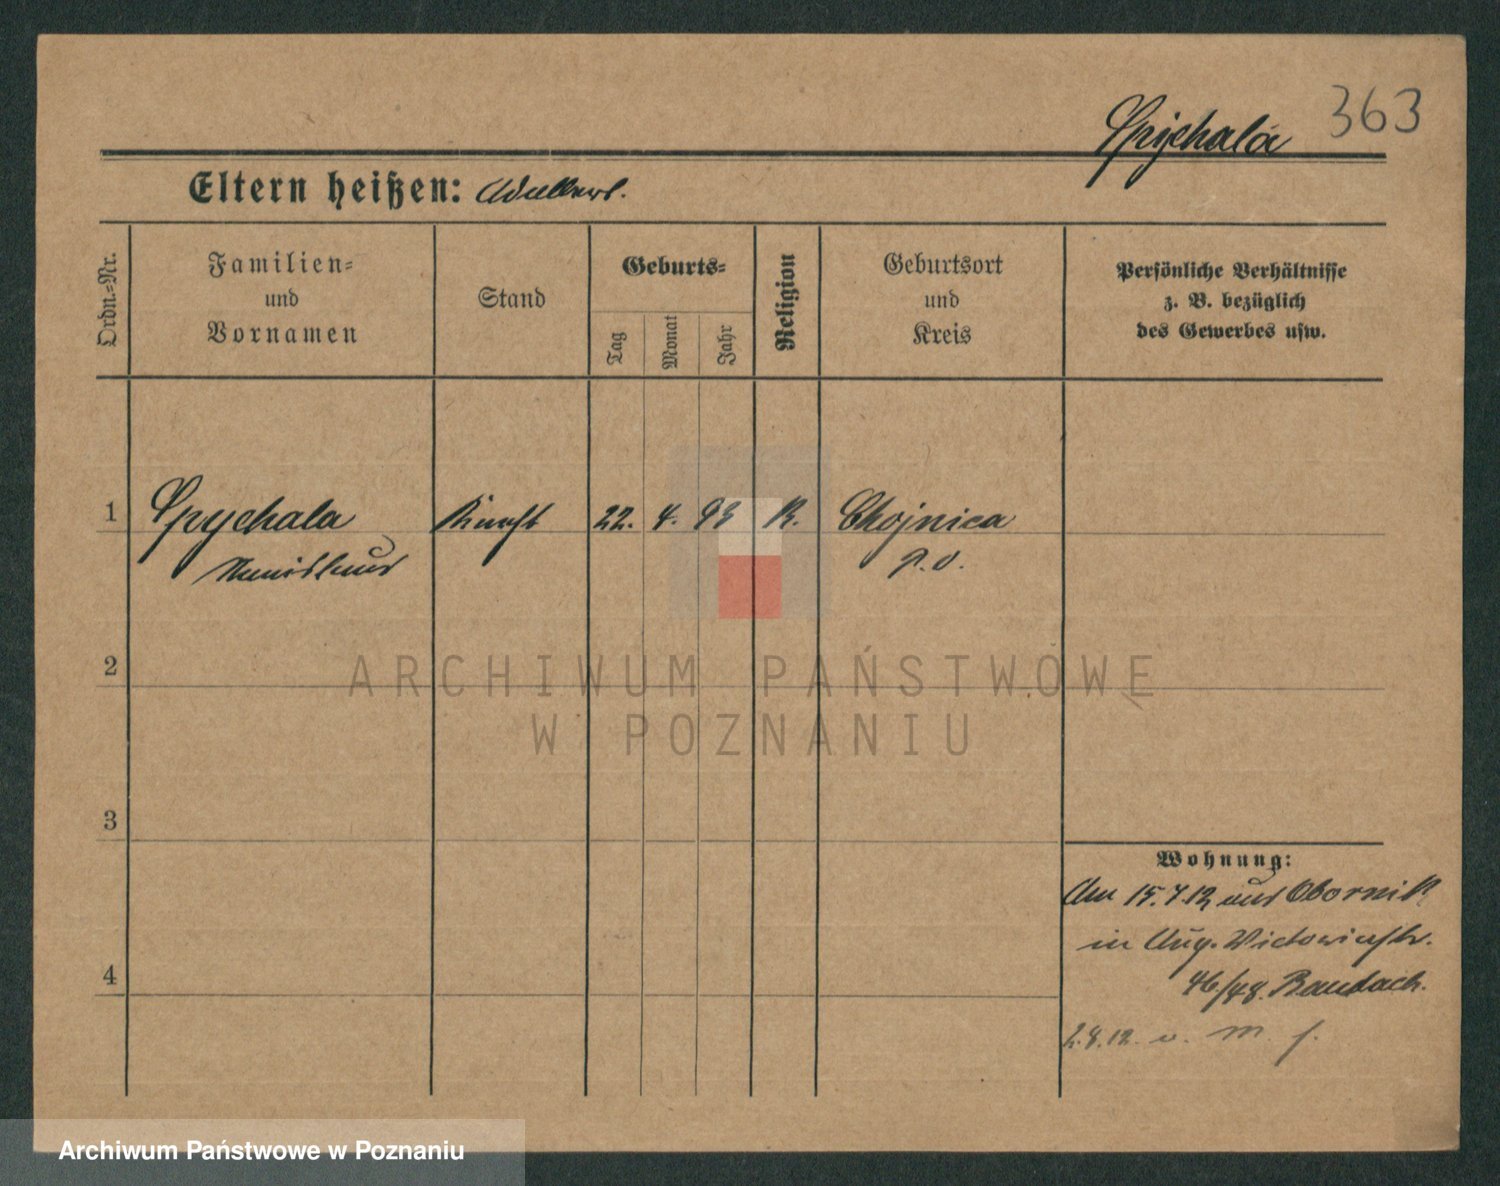 363
Spychala
Eltern heißen: Adalbert.
Ordn.-Nr.
Familien-
und
Vornamen
Stand
Geburts-
Tag
Monat
Jahr
Religion
Geburtsort
und
Kreis
Persönliche Verhältnisse
z. B. bezüglich
des Gewerbes usw.
1 Spychala 22. 4. 93 K. Chojnica
Stanislaus P. O.
2
3
4
Wohnung:
Am 15.7.12 aus Obornik
in Aug. Victoriastr.
46/48. Baudach.
2.8.12. v. M. f.
ARCHIWUM PAŃSTWOWE
W POZNANIU
Archiwum Państwowe w Poznaniu